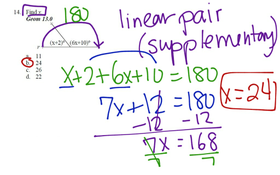 14. Find x.
Geom 13.0
180
(x+2)° (6x+10)°
a. 11
b. 24
c. 26
d. 22
linear pair
(supplementary)
x+2+6x+10=180
7x+12=180
-12 -12
7x=168
7 7
x=24